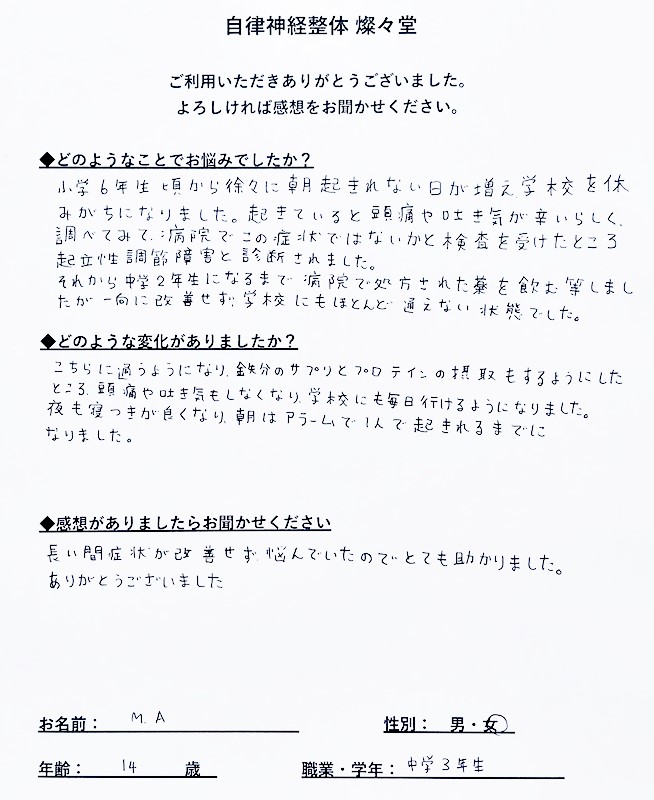 自律神経整体 燦々堂
ご利用いただきありがとうございました。
よろしければ感想をお聞かせください。
◆どのようなことでお悩みでしたか？
小学6年生頃から徐々に朝起きれない日が増え学校を休
みがちになりました。起きていると頭痛や吐き気が辛いらしく、
調べてみて、病院でこの症状ではないかと検査を受けたところ
起立性調節障害と診断されました。
それから中学2年生になるまで病院で処方された薬を飲む等しまし
たが一向に改善せず、学校にもほとんど通えない状態でした。
◆どのような変化がありましたか？
こちらに通うようになり、鉄分のサプリとプロテインの摂取もするようにした
ところ、頭痛や吐き気もしなくなり、学校にも毎日行けるようになりました。
夜も寝つきが良くなり、朝はアラームで1人で起きれるまでに
なりました。
◆感想がありましたらお聞かせください
長い間症状が改善せず、悩んでいたのでとても助かりました。
ありがとうございました
お名前： M.A 性別： 男・女
年齢： 14 歳 職業・学年： 中学3年生